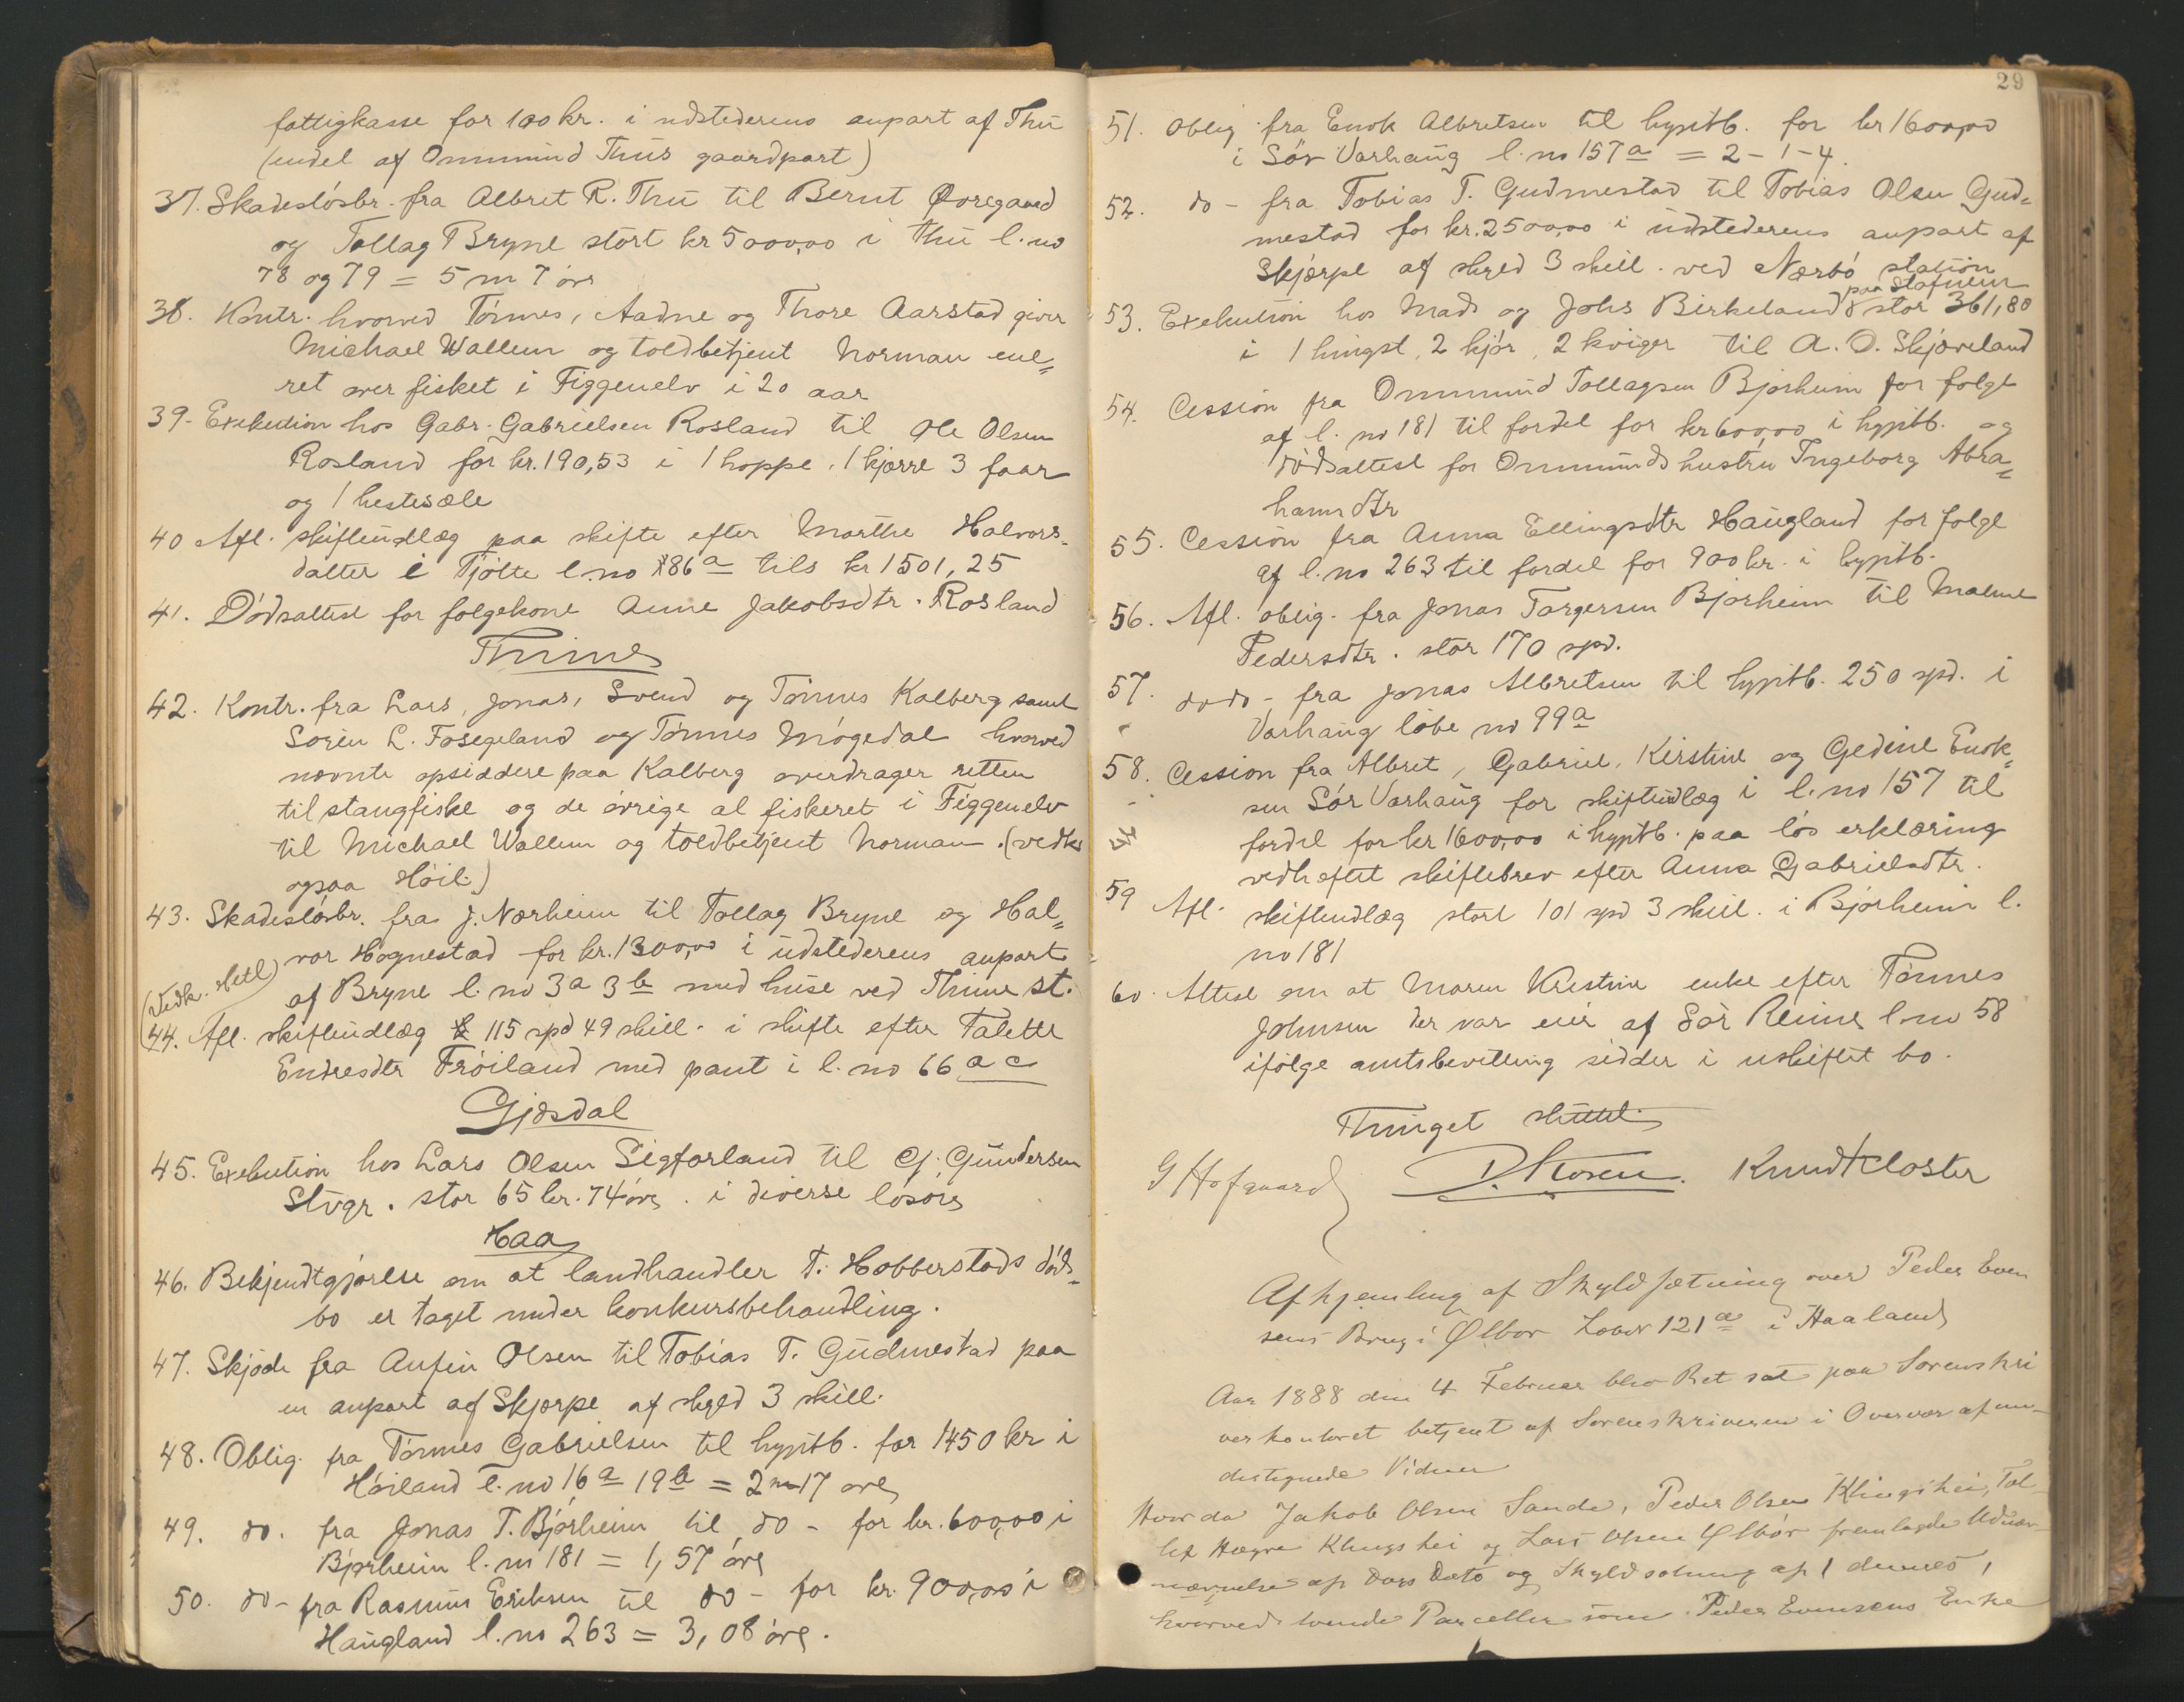 fattigkasse for 100 kr. i udstederens anpart af Thu
(endel af Ommund Thus gaardpart)
37. Skadesløsbr. fra Albret R. Thu til Bernt Øvregaard
og Tollag Bryne stort kr 5000,00 i Thu l. no
78 og 79 = 5 m 7 øre
38. Kontr. hvorved Tönnes, Aadne og Thore Aarstad giver
Michael Wallem og toldbetjent Norman ene=
ret over fisket i Figgenelv i 20 aar
39. Exekution hos Gabr. Gabrielsen Rosland til Ole Olsen
Rosland for kr. 190,53 i 1 hoppe, 1 kjærre 3 faar
og 1 hestesæle
40 Afl. skifteudlæg paa skifte efter Marthe Halvors-
datter i Tjötte l. no 186 a tils kr 1501,25
41. Dødsattest for folgekone Anne Jakobsdtr. Rosland
Thime
42. Kontr. fra Lars, Jonas, Svend og Tönnes Kalberg samt
Soren L. Fosegeland og Tönnes Mögedal hvorved
nævnte opsiddere paa Kalberg overdrager retten
til stangfiske og de övrige al fiskeret i Figgenelv
til Michael Wallem og toldbetjent Norman. (vedk
ogsaa Höil.)
43. Skadeslösbr. fra J. Nærheim til Tollag Bryne og Hal=
vor Hognestad for kr. 1300,00 i udstederens anpart
af Bryne l. no 3a 3b med huse ved Thime st.
(Vedk. Hetl)
44. Afl. skifteudlæg 115 spd 49 skill. i skifte efter Talette
Endresdtr Fröiland med pant i l. no 66 a c
Gjæsdal
45. Exekution hos Lars Olsen Sigforland til G. Gundersen
Stvgr. stor 65 kr. 74 öre i diverse lösöre
Haa
46. Bekjendtgjørelse om at landhandler T. Hobberstads döds=
bo er taget under konkursbehandling.
47. Skjøde fra Anfin Olsen til Tobias T. Gudmestad paa
en anpart af Skjærpe af skyld 3 skill.
48. Oblig. fra Tönnes Gabrielsen til hyptb. for 1450 kr i
Höiland l. no 16 a 19 b = 2 m 17 öre
49. do. fra Jonas T. Bjorheim til do - for kr. 600,00 i
Bjorheim l. no 181 = 1,57 öre
50. do - fra Rasmus Eriksen til do - for kr. 900,00 i
Haugland l. no 263 = 3,08 öre.
29
51. Oblig fra Enok Albretsen til hyptb. for kr 1600,00
i Sör Varhaug l. no 157 a = 2-1-4.
52. do - fra Tobias T. Gudmestad til Tobias Olsen Gud=
mestad for kr. 2500,00 i udstederens anpart af
Skjærpe af skyld 3 skill. ved Nærbö station
paa Stafnem
53. Exekution hos Mads og Johs Birkeland stor 361,80
i 1 hingst, 2 kjör, 2 kviger til A. O. Skjæveland
54. Cession fra Ommund Tollagsen Bjorheim for folge
af l. no 181 til fordel for kr 600,00 i hyptb. og
dödsattest for Ommunds hustru Ingeborg Abra=
hamsdtr
55. Cession fra Anna Ellingsdtr Haugland for folge
af l. no 263 til fordel for 900 kr. i hyptb.
56. Afl. oblig. fra Jonas Torgersen Bjorheim til Malene
Pedersdtr. stor 170 spd.
57. do do - fra Jonas Albretsen til hyptb. 250 spd. i
Varhaug löbe no 99 a
58. Cession fra Albret, Gabriel, Kirstine og Gedine Enok=
sen Sör Varhaug for skifteudlæg i l. no 157 til
fordel for kr 1600,00 i hyptb. paa lös erklæring
vedheftet skiftebrev efter Anna Gabrielsdtr.
59 Afl. skifteudlæg stort 101 spd 3 skill. i Bjorheim l.
no 181
60. Attest om at Maren Kristine enke efter Tönnes
Johnsen der var eier af Sör Reime l. no 58
ifölge amtsbevilling sidder i uskiftet bo.
Thinget sluttet.
G Hofgaard Knud Kloster
Afhjemling af Skyldsætning over Peder Even
sens Brug i Ølbor Lobnr 121 a i Haaland
Aar 1888 den 4 Februar blev Ret sat paa Sorenskri
verkontoret betjent af Sorenskriveren i Overvær af un-
dertegnede Vidner
Hvorda Jakob Olsen Sande, Peder Olsen Klingshei, Tol
lef Hegre Klingshei og Lars Olsen Ølbör fremlagde Udnæv-
nævnelse af Dags Dato og Skyldsætning af 1 dennes,
hvorved tvende Parceller som Peder Evensens Enke